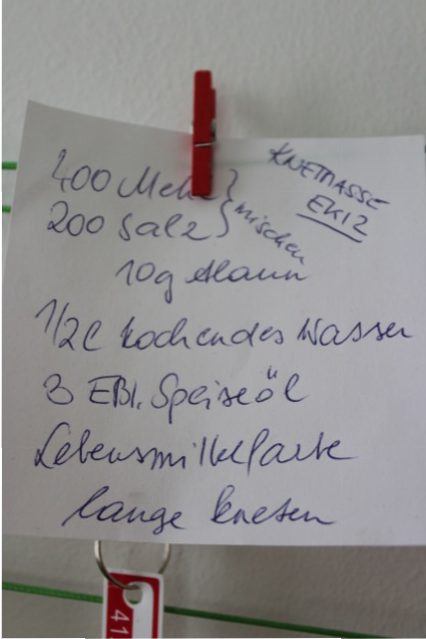 KNETMASSE
EKIZ
400 Mehl }
200 Salz } mischen
10g Alaun
1/2 l kochendes Wasser
3 EBl. Speiseöl
Lebensmittelfarbe
lange kneten
41